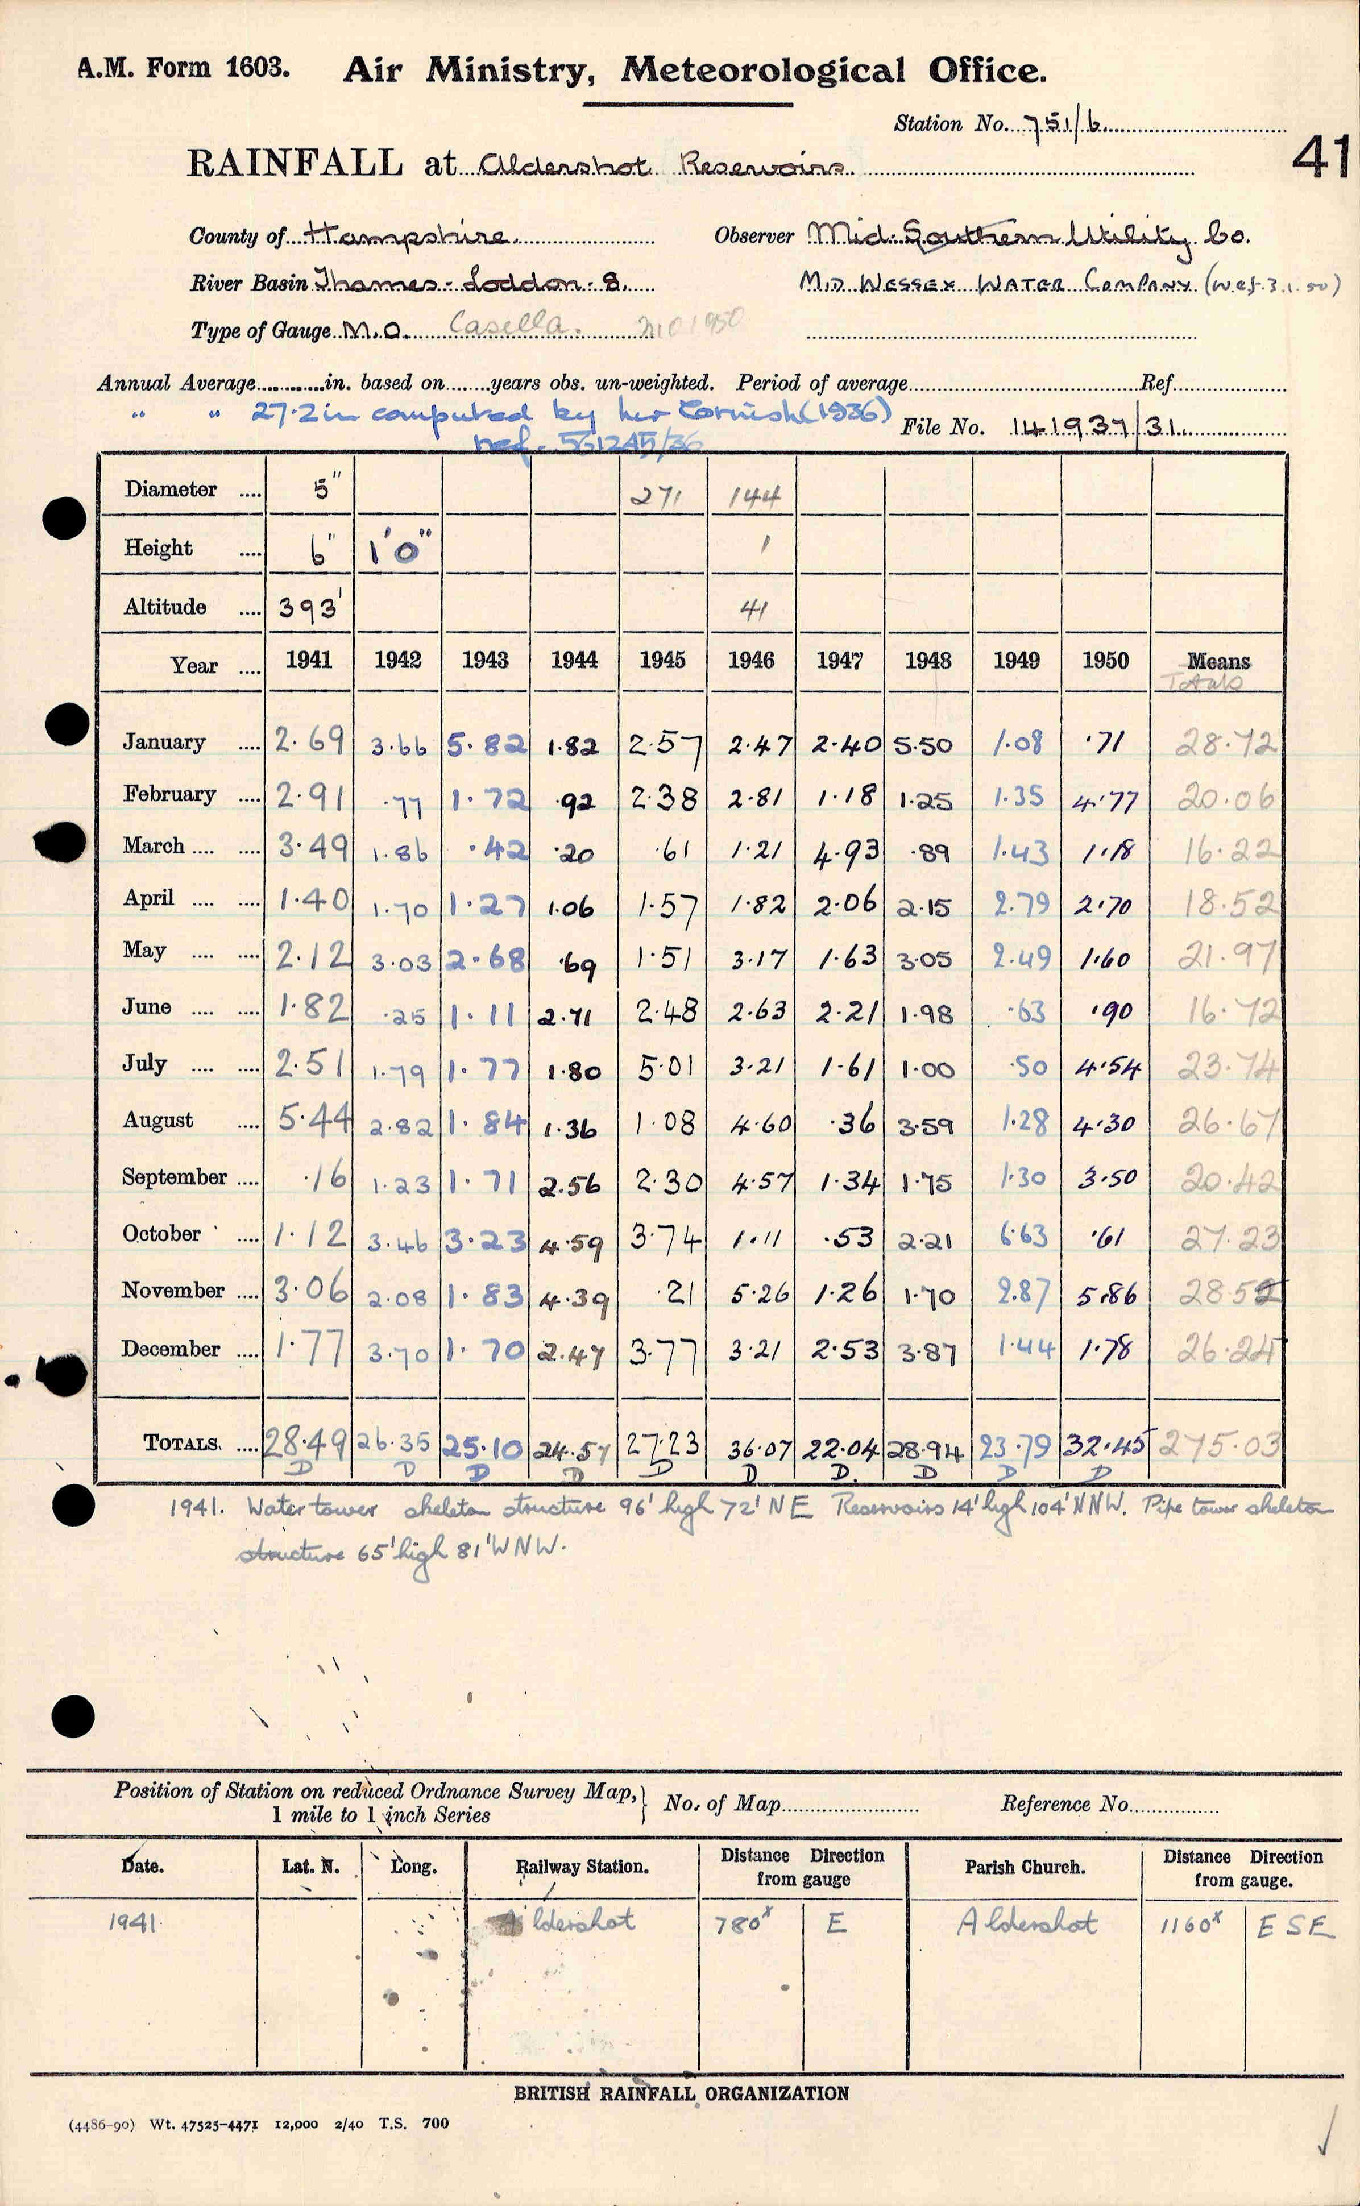 A.M. Form 1603. Air Ministry, Meteorological Office.
Station No. 751/6
41
RAINFALL at Aldershot Reservoirs
County of Hampshire Observer Mid. Southern Utility Co.
River Basin Thames - Loddon - 8. Mid Wessex Water Company (w.e.f. 3.1.50)
Type of Gauge M.O. Casella. 1950
Annual Average in. based on years obs. un-weighted. Period of average Ref.
" " 27.2 in computed by Cornish (1936) File No. 141937/31
ref. 561245/36
Diameter .... 5" 271 144
Height .... 6" 1'0" 1
Altitude .... 393' 41
Year .... 1941 1942 1943 1944 1945 1946 1947 1948 1949 1950 Means
Totals
January .... 2.69 3.66 5.82 1.82 2.57 2.47 2.40 5.50 1.08 .71 28.72
February .... 2.91 .77 1.72 .92 2.38 2.81 1.18 1.25 1.35 4.77 20.06
March .... .... 3.49 1.86 .42 .20 .61 1.21 4.93 .89 1.43 1.18 16.22
April .... .... 1.40 1.70 1.27 1.06 1.57 1.82 2.06 2.15 2.79 2.70 18.52
May .... .... 2.12 3.03 2.68 .69 1.51 3.17 1.63 3.05 2.49 1.60 21.97
June .... .... 1.82 .25 1.11 2.71 2.48 2.63 2.21 1.98 .63 .90 16.72
July .... .... 2.51 1.79 1.77 1.80 5.01 3.21 1.61 1.00 .50 4.54 23.74
August .... 5.44 2.82 1.84 1.36 1.08 4.60 .36 3.59 1.28 4.30 26.67
September .... .16 1.23 1.71 2.56 2.30 4.57 1.34 1.75 1.30 3.50 20.42
October .... 1.12 3.46 3.23 4.59 3.74 1.11 .53 2.21 6.63 .61 27.23
November .... 3.06 2.08 1.83 4.39 .21 5.26 1.26 1.70 2.87 5.86 28.52
December .... 1.77 3.70 1.70 2.47 3.77 3.21 2.53 3.87 1.44 1.78 26.24
TOTALS. .... 28.49 26.35 25.10 24.57 27.23 36.07 22.04 28.94 23.79 32.45 275.03
D D D D D D D. D D D
1941. Water tower skeleton structure 96' high 72' NE Reservoirs 14' high 104' NNW. Pipe tower skeleton
structure 65' high 81' WNW.
Position of Station on reduced Ordnance Survey Map, } No. of Map Reference No.
1 mile to 1 inch Series
Date. Lat. N. Long. Railway Station. Distance Direction from gauge Parish Church. Distance Direction from gauge.
1941 Aldershot 780x E Aldershot 1160x ESE
BRITISH RAINFALL ORGANIZATION
(4486-90) Wt. 47525-4471 12,000 2/40 T.S. 700